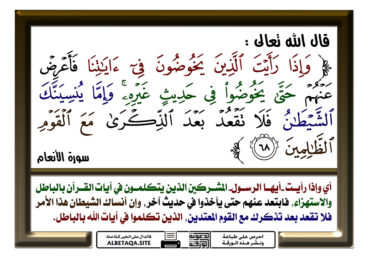 قال الله تعالى :
﴿ وَإِذَا رَأَيْتَ ٱلَّذِينَ يَخُوضُونَ فِىٓ ءَايَٰتِنَا فَأَعْرِضْ
عَنْهُمْ حَتَّىٰ يَخُوضُوا۟ فِى حَدِيثٍ غَيْرِهِۦ ۚ وَإِمَّا يُنسِيَنَّكَ
ٱلشَّيْطَٰنُ فَلَا تَقْعُدْ بَعْدَ ٱلذِّكْرَىٰ مَعَ ٱلْقَوْمِ
ٱلظَّٰلِمِينَ ٦٨ ﴾
سورة الأنعام
أي وإذا رأيـت ـ أيهـا الرسـول ـ المشـركين الذين يتكلمـون في آيات القـرآن بالباطل
والاستهزاء، فابتعد عنهم حتى يأخذوا في حديث آخر، وإن أنساك الشيطان هذا الأمر
فلا تقعد بعد تذكرك مع القوم المعتدين، الذين تكلموا في آيات الله بالباطل.
احرص على طباعة
ونشر هذه الورقة
ALBETAQA.SITE